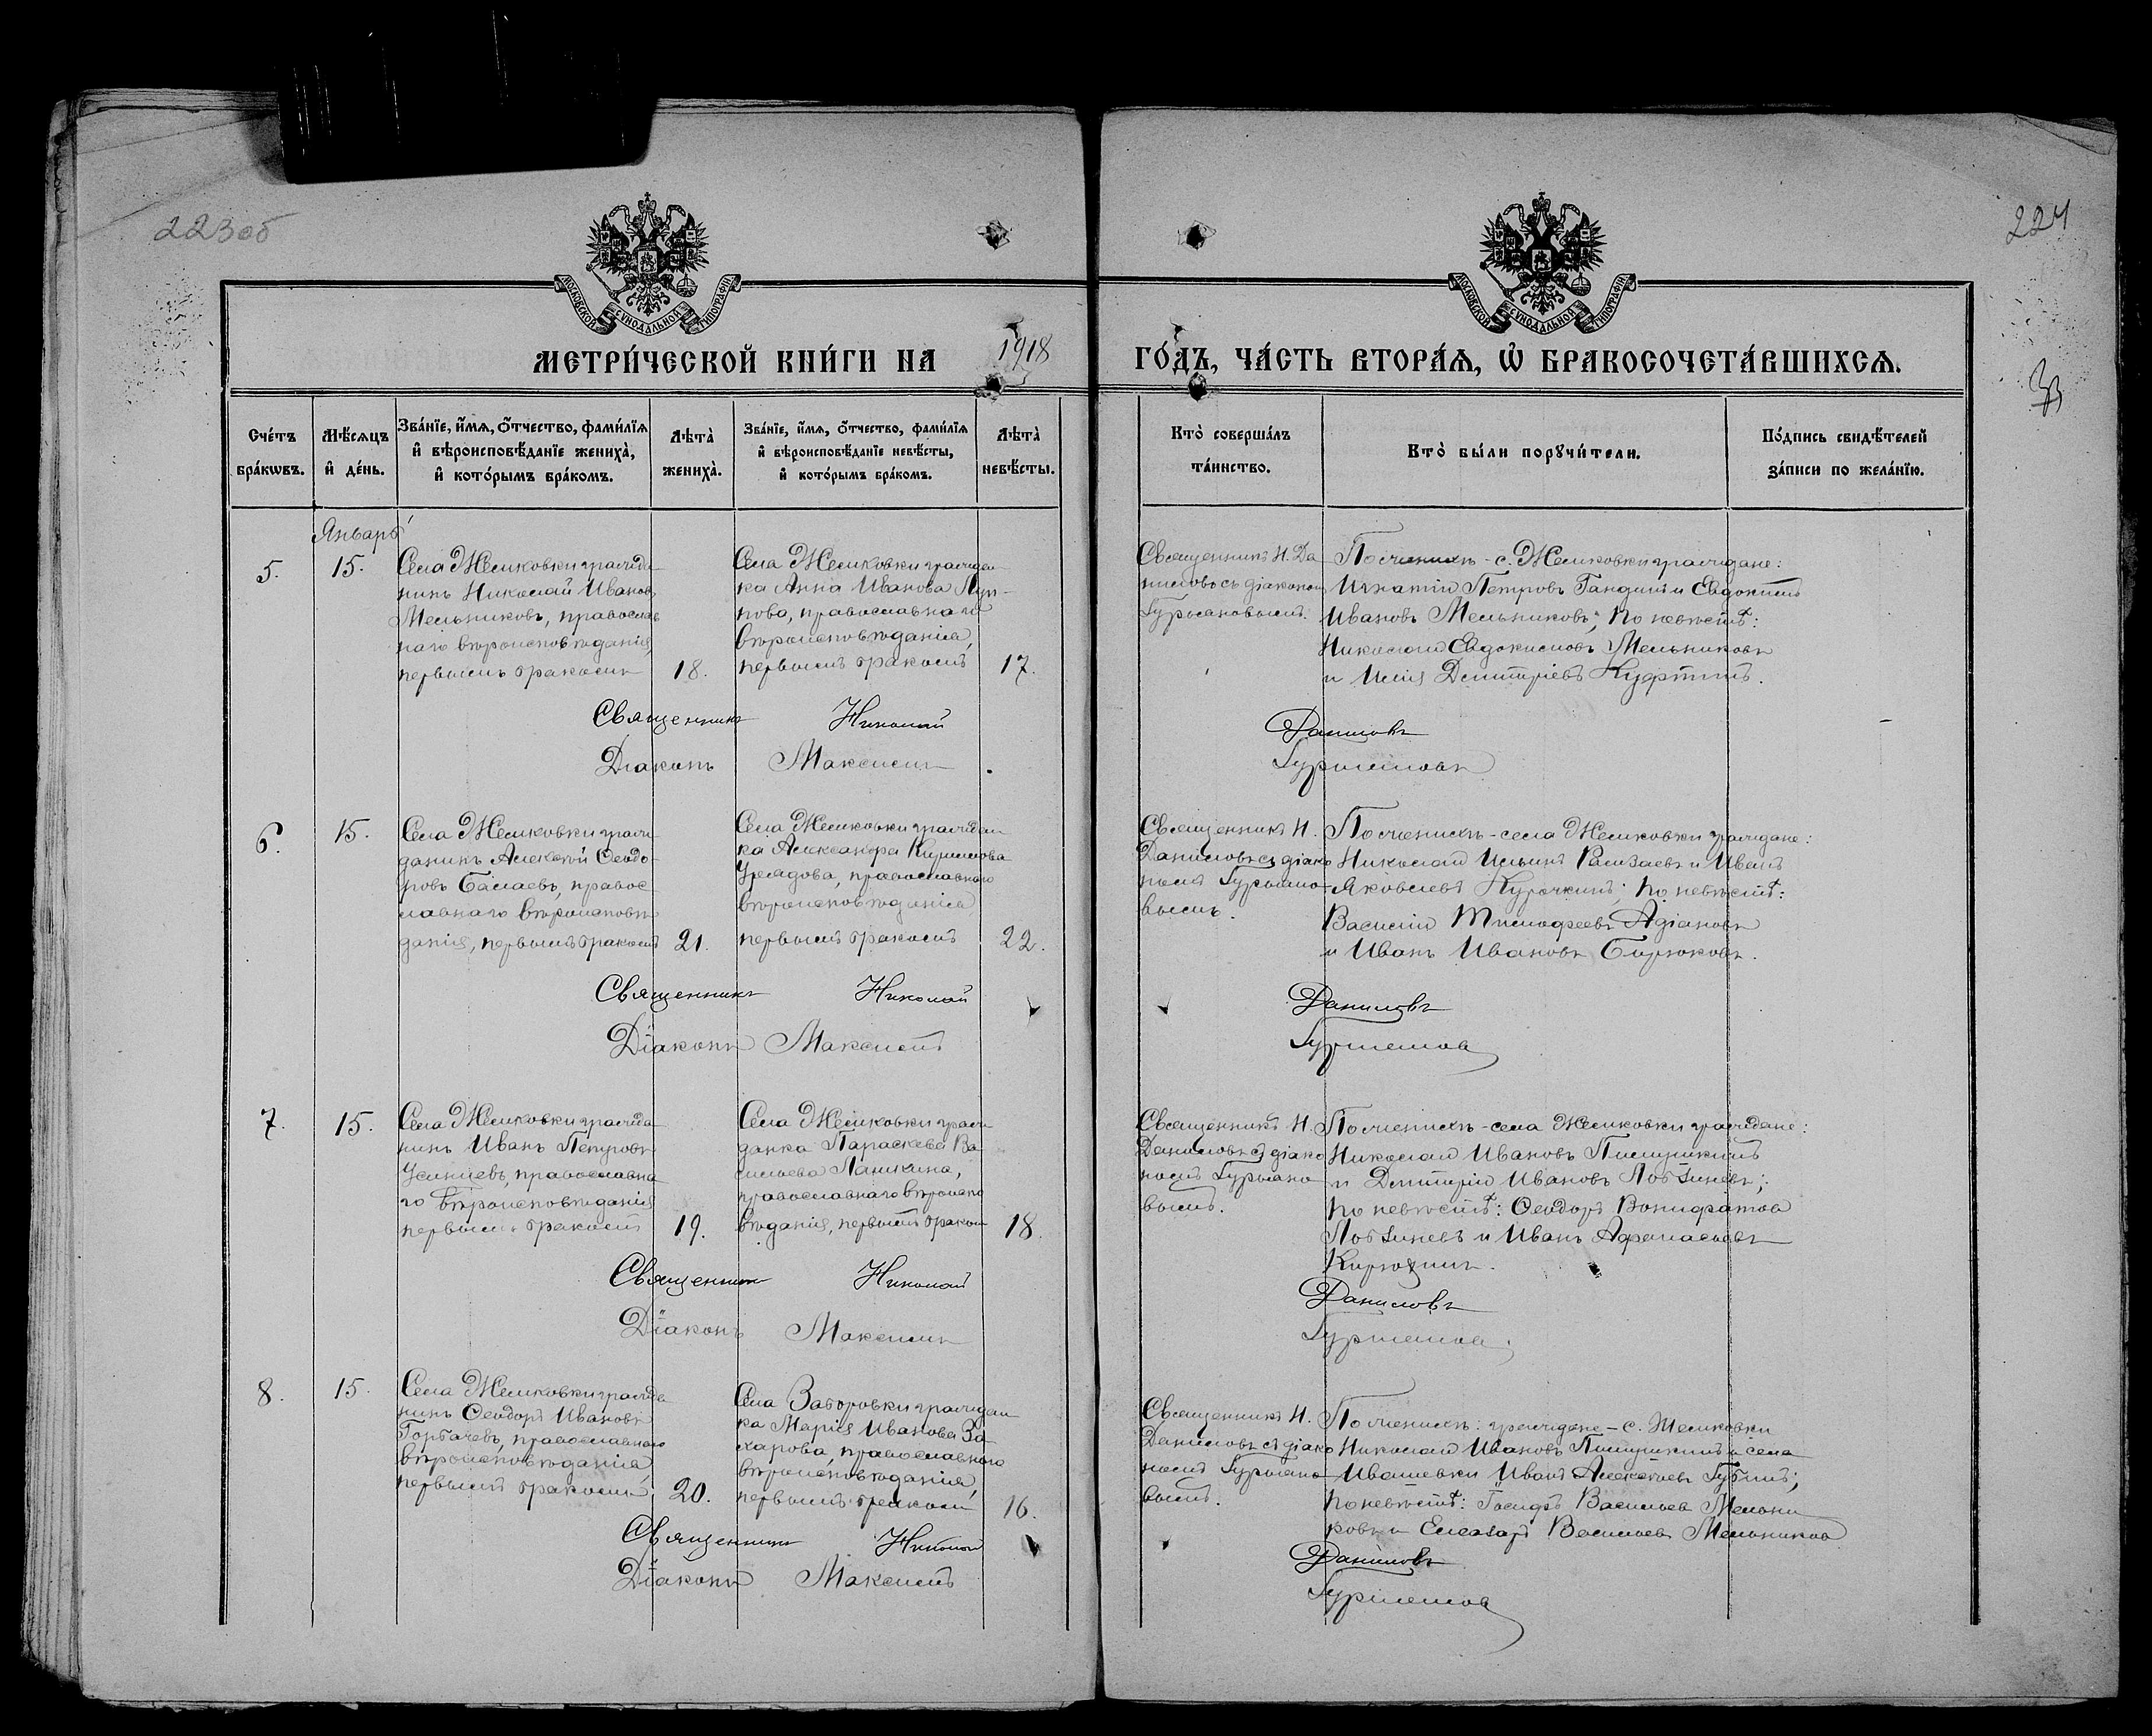 223об
224
МОСКОВСКОЙ СУНОДАЛЬНОЙ ТИПОГРАФІИ.
МОСКОВСКОЙ СУНОДАЛЬНОЙ ТИПОГРАФІИ.
МЕТРИ́ЧЕСКОЙ КНИ́ГИ НА 1918 ГО́ДЪ, ЧА́СТЬ ВТОРА́Ѧ, Ѡ҆ БРАКОСОЧЕТА́ВШИХСѦ.
Сче́тъ бра́кѡвъ.
Мѣ́сѧцъ и҆ де́нь.
Зва́нїе, и҆́мѧ, ѻ҆́тчество, фами́лїѧ и҆ вѣроисповѣ́данїе жениха̀, и҆ кото́рымъ бра́комъ.
Лѣта̀ жениха̀.
Зва́нїе, и҆́мѧ, ѻ҆́тчество, фами́лїѧ и҆ вѣроисповѣ́данїе невѣ́сты, и҆ кото́рымъ бра́комъ.
Лѣта̀ невѣ́сты.
Кто̀ соверша́лъ та́инство.
Кто̀ бы́ли порꙋчи́тели.
По́дпись свидѣ́телей за́писи по жела́нїю.
Январь
5.
15.
Села Жемковки гражда-
нинъ Николай Ивановъ
Мельниковъ, православ
наго вѣроисповѣданія,
первымъ бракомъ
18.
Села Жемковки граждан
ка Анна Иванова
православнаго
вѣроисповѣданія,
первымъ бракомъ
17.
Священникъ Н. Да
ниловъ съ діакономъ
Гурьяновымъ.
По женихѣ - с. Жемковки граждане:
Игнатій Петровъ Гандинъ и Евдокимъ
Ивановъ Мельниковъ; по невѣстѣ:
Николай Евдокимовъ Мельниковъ
и Илія Дмитріевъ Куфтинъ.
Священникъ Николай Даниловъ
Діаконъ Максимъ Гурьяновъ
6.
15.
Села Жемковки граж-
данинъ Алексѣй Ѳеодо-
ровъ Балаевъ, правос-
лавнаго вѣроисповѣ
данія, первымъ бракомъ
21.
Села Жемковки граждан
ка Александра Кириллова
православнаго
вѣроисповѣданія,
первымъ бракомъ
22.
Священникъ Н.
Даниловъ съ діако
номъ Гурьяно-
вымъ.
По женихѣ - села Жемковки граждане:
Николай Ильинъ и Иванъ
Яковлевъ Курочкинъ; по невѣстѣ:
Василій Тимофеевъ Адіановъ
и Иванъ Ивановъ Бирюковъ.
Священникъ Николай Даниловъ
Діаконъ Максимъ Гурьяновъ
7.
15.
Села Жемковки гражда
нинъ Иванъ Петровъ
православна
го вѣроисповѣданія
первымъ бракомъ
19.
Села Жемковки граж
данка Параскева Ва
сильева Паникина,
православнаго вѣроиспо
вѣданія, первымъ браком
18.
Священникъ Н.
Даниловъ съ діако
номъ Гурьяно
вымъ.
По женихѣ - села Жемковки граждане:
Николай Ивановъ Пилушкинъ
и Дмитрій Ивановъ Лобзиневъ;
по невѣстѣ: Ѳеодоръ Вонифатов
Лобзиневъ и Иванъ Афанасьевъ
Кирюхинъ.
Священникъ Николай Даниловъ
Діаконъ Максимъ Гурьянов.
8.
15.
Села Жемковки гражда
нинъ Ѳеодоръ Ивановъ
Горбачевъ, православнаго
вѣроисповѣданія,
первымъ бракомъ,
20.
Села Заборовки граждан
ка Марія Иванова За
харова, православнаго
вѣроисповѣданія,
первымъ бракомъ
16.
Священникъ Н.
Даниловъ съ діако
номъ Гурьяно
вымъ.
По женихѣ: граждане - с. Жемковки
Николай Ивановъ Пилушкинъ и села
Ивашевки Иванъ Алексѣевъ Губинъ;
по невѣстѣ: Іосифъ Васильев Мельни
ковъ и Елеазаръ Васильев Мельников
Священникъ Николай Даниловъ
Діаконъ Максимъ Гурьянов